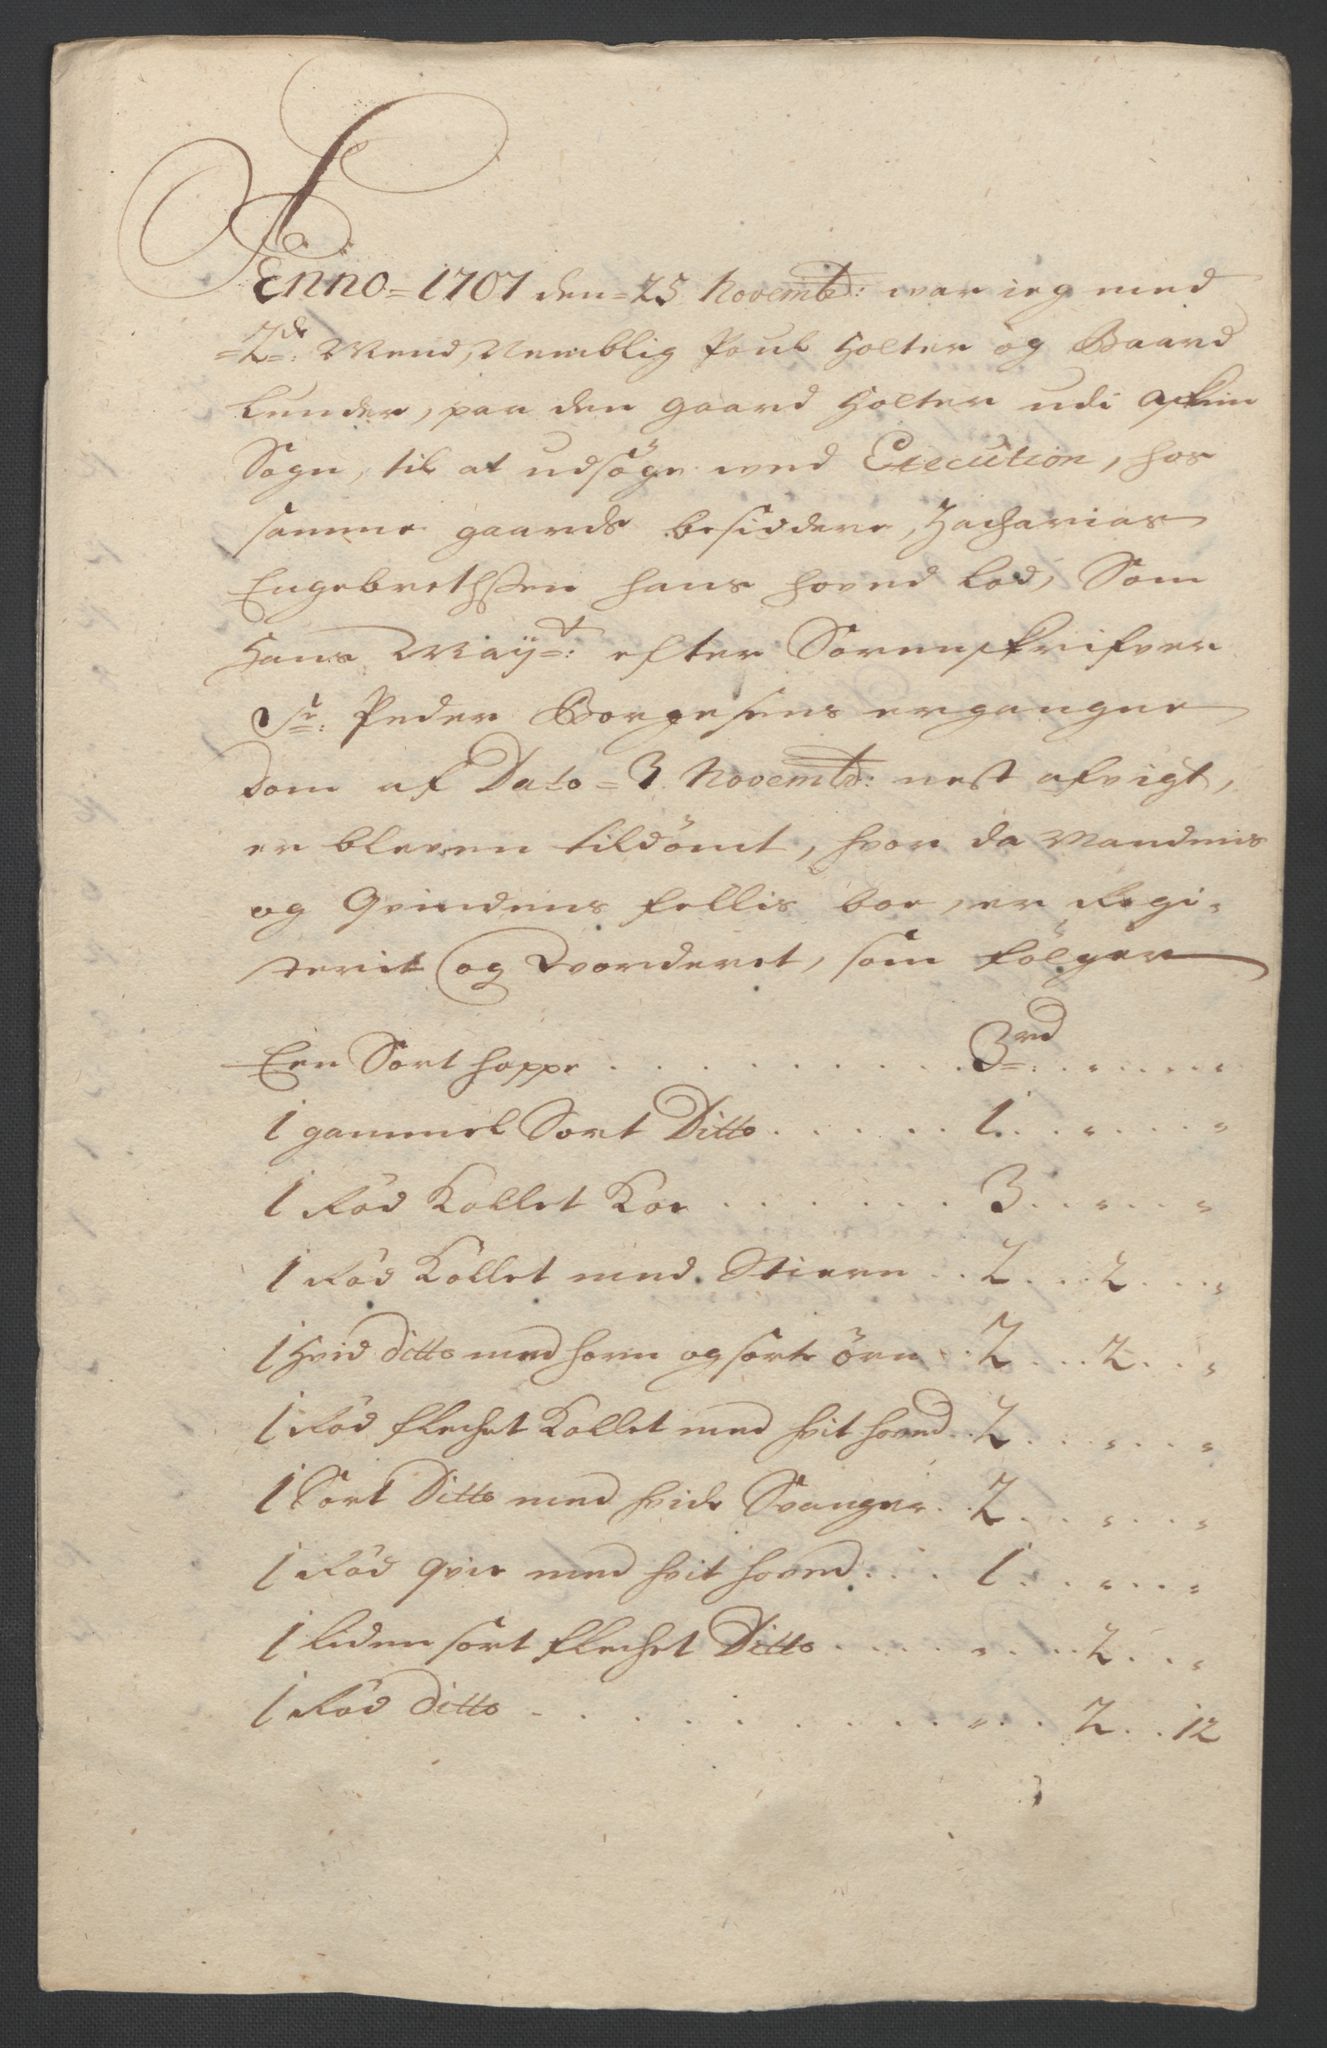 Anno = 1707 den = 25 Novembr: war ieg med
= 2de: Mend, Nemblig Poul Holter og Baard
Lunder, paa den gaard Holter udi Aschim
Sogn, til at udsöge med Execution, hos
samme gaards besiddere, Zacharias
Engebrethssen hans hoved lod, Som
Hans Mayt: efter Sorenschrifver
Sr: Peder Borgesens ergangne
dom af Dato = 3 Novembr: nest afvigt,
er bleven tildömt, hvor da Mandens
og Qvindens fellis boe, er Regi-
sterit og Vorderet, som fölger
Een Sort hoppe . . . . . 3 rd: . . " . . "
1 gammel Sort Ditto . . . . . 1 . . " . . "
1 Röd Kollet Koe . . . . . 3 . . " . . "
1 Röd Kollet med Stiern . . 2 . . 2 . . "
1 Hvid ditto med horn og sorte örn . . 2 . . 2 . . "
1 Röd flechet Kollet med hvit hoved . . 2 . . " . . "
1 Sort Ditto med hvide Svanger . . 2 . . " . . "
1 Röd qvie med hvit hoved . . . 1 . . " . . "
1 liden sort flechet Ditto . . . . " . . 2 . . "
1 Röd ditto . . . . . " . . 2 . . 12